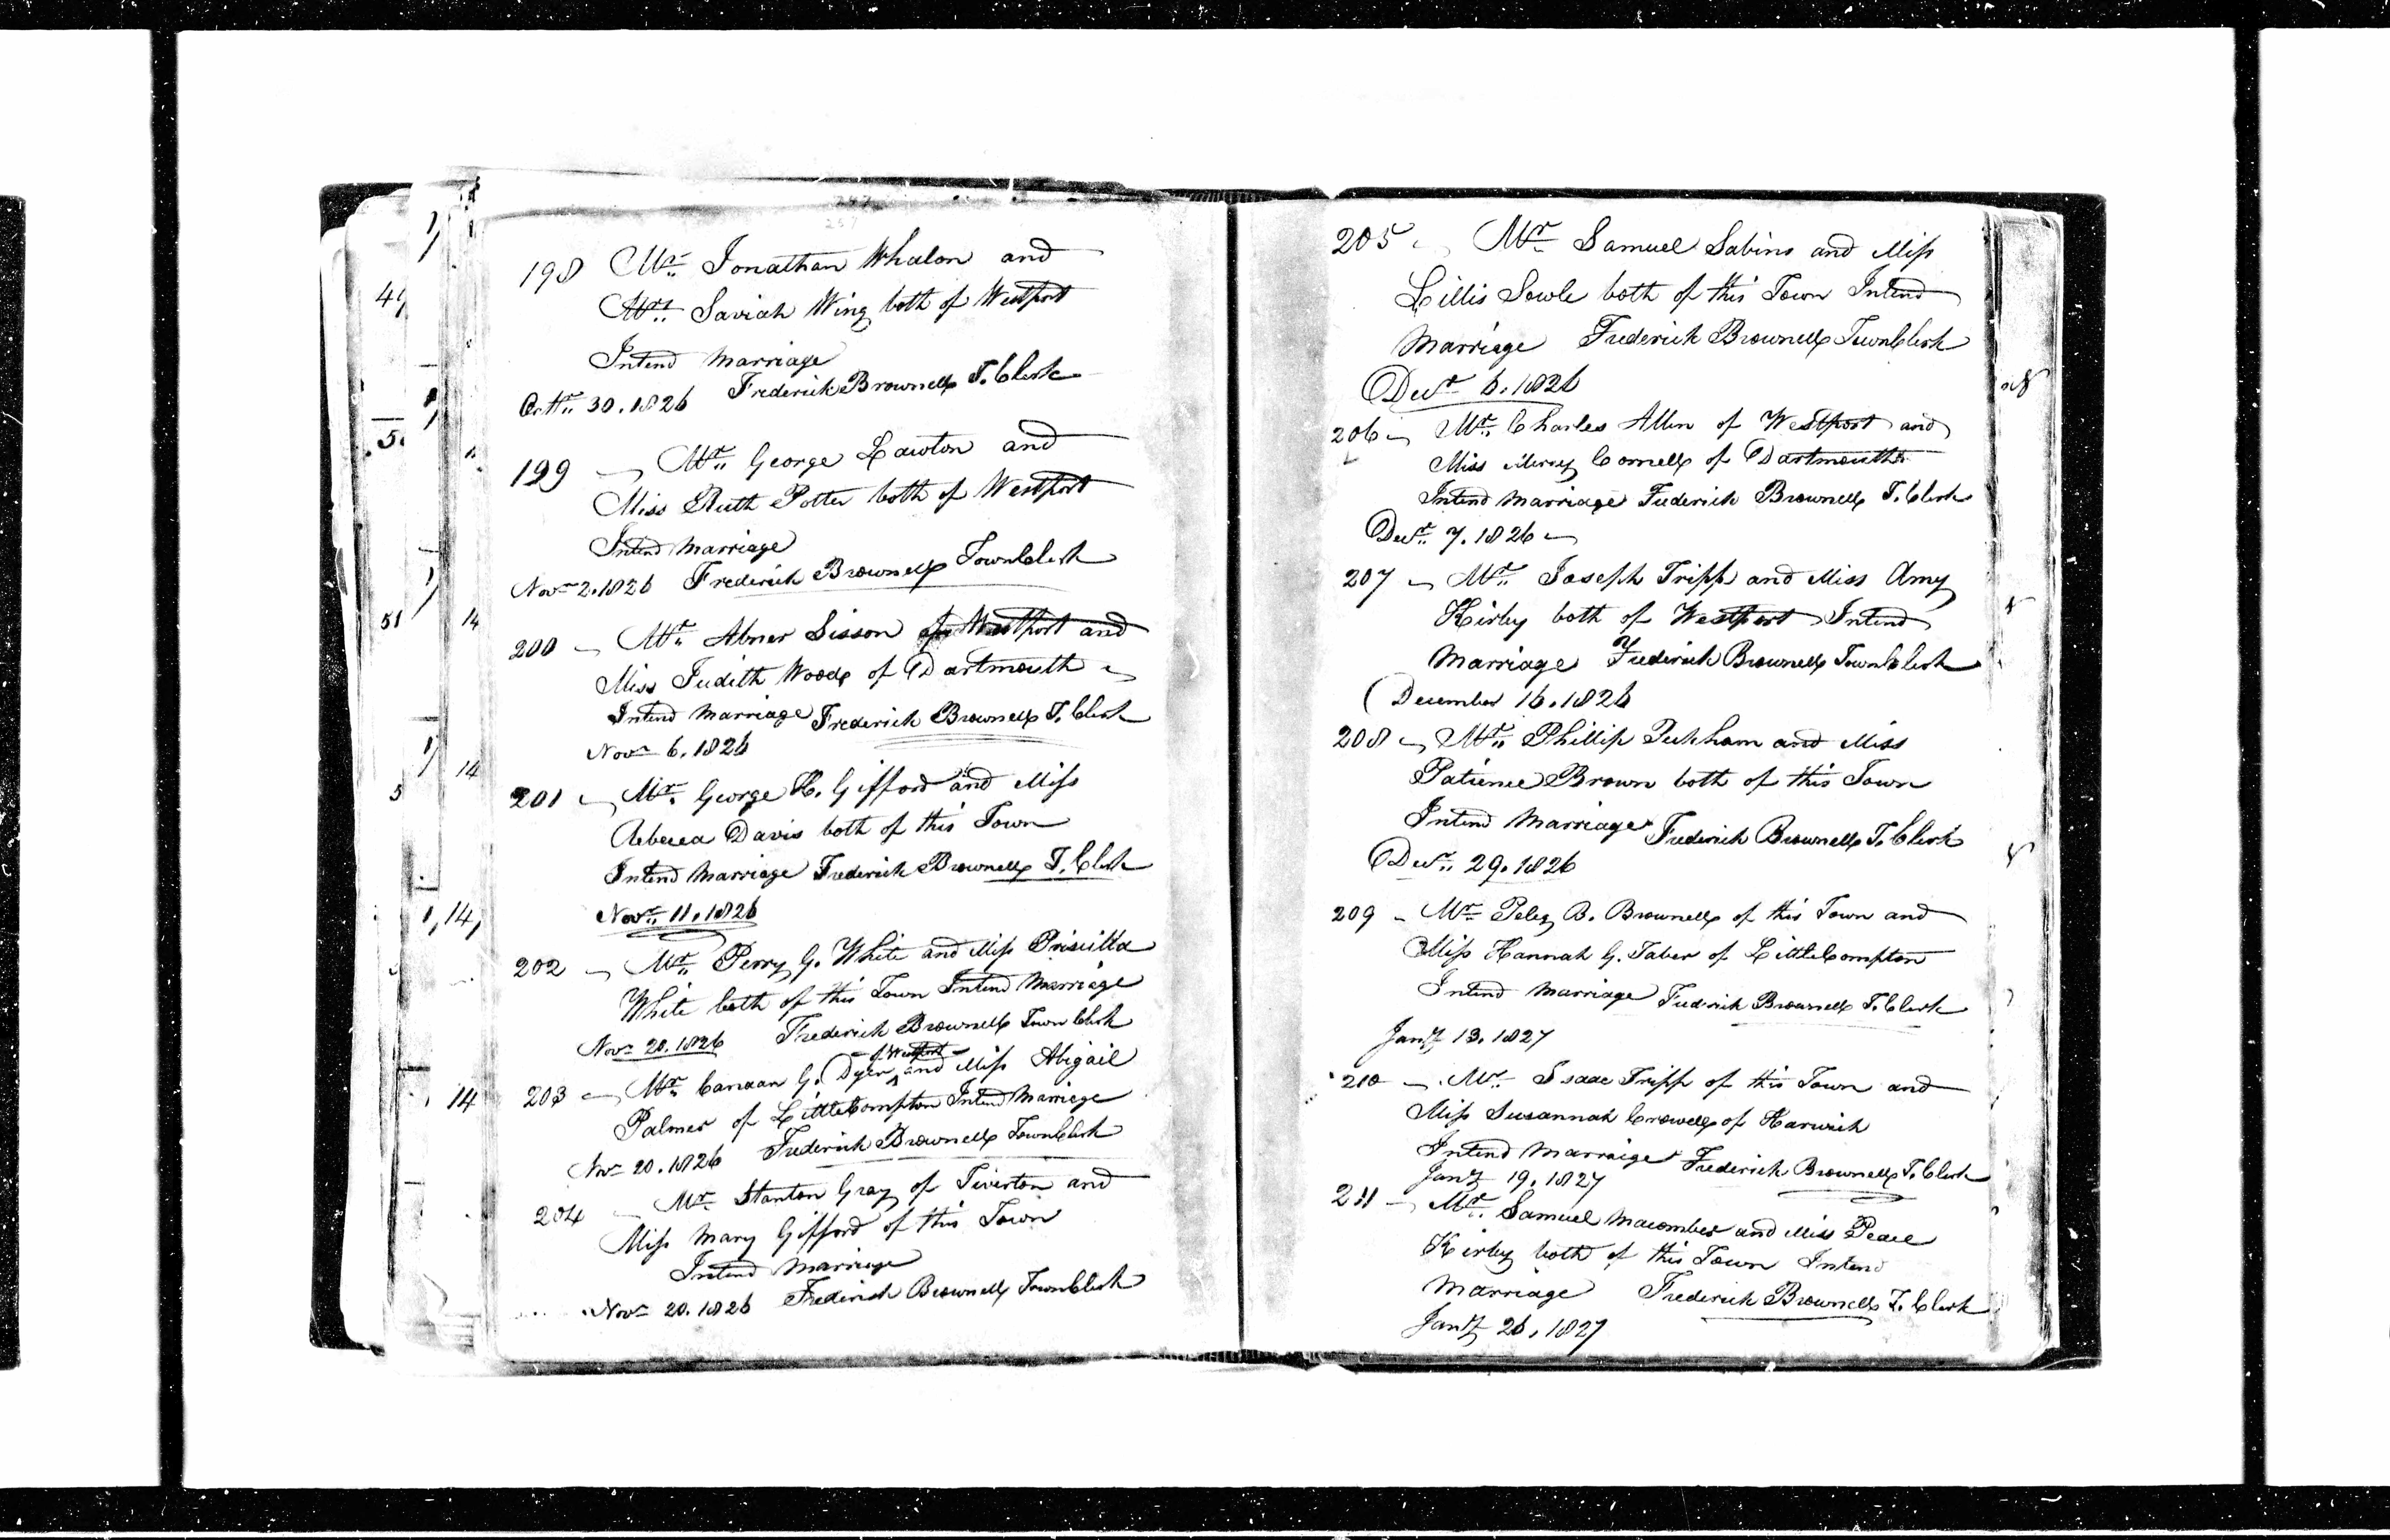 198 Mr. Jonathan Whalon and
Mrs. Saviah Wing both of Westport
Intend Marriage
Octr. 30. 1826 Frederick Brownell T. Clerk
199 Mr. George Lawton and
Miss Ruth Potter both of Westport
Intend Marriage
Novr 2. 1826 Frederick Brownell Town Clerk
200 Mr. Abner Sisson of Westport and
Miss Judith Wood of Dartmouth
Intend Marriage Frederick Brownell T. Clerk
Novr 6. 1826
201 Mr. George H. Gifford and Miss
Rebecca Davis both of this Town
Intend Marriage Frederick Brownell T. Clerk
Novr. 11. 1826
202 Mr. Perry G. White and Miss Priscilla
White both of this Town Intend Marriage
Novr 20. 1826 Frederick Brownell Town Clerk
of Westport
203 Mr. Canaan G. Dyer ^ and Miss Abigail
Palmer of Little Compton Intend Marriage
Novr 20. 1826 Frederick Brownell Town Clerk
204 Mr. Stanton Gray of Tiverton and
Miss Mary Gifford of this Town
Intend Marriage
Novr 20. 1826 Frederick Brownell Town Clerk
205 Mr Samuel Sabins and Miss
Lillis Sowle both of this Town Intend
Marriage Frederick Brownell Town Clerk
Decr 6. 1826
206 Mr. Charles Allen of Westport and
Miss Mercy Cornell of Dartmouth
Intend Marriage Frederick Brownell T. Clerk
Decr. 7. 1826
207 Mr. Joseph Tripp and Miss Amy
Kirby both of Westport Intend
Marriage Frederick Brownell Town Clerk
December 16. 1826
208 Mr. Phillip Peckham and Miss
Patience Brown both of this Town
Intend Marriage Frederick Brownell T. Clerk
Decr. 29. 1826
209 Mr Peleg B. Brownell of this Town and
Miss Hannah G. Taber of Little Compton
Intend Marriage Fredrick Brownell T. Clerk
Jany 13. 1827
210 Mr. Isaac Tripp of this Town and
Miss Susannah Crowell of Harwich
Intend Marraige Frederick Brownell T. Clerk
Jany 19. 1827
211 Mr. Samuel Macomber and Miss Peace
Kirby both of this Town Intend
Marriage Frederick Brownell T. Clerk
Jany 26, 1827